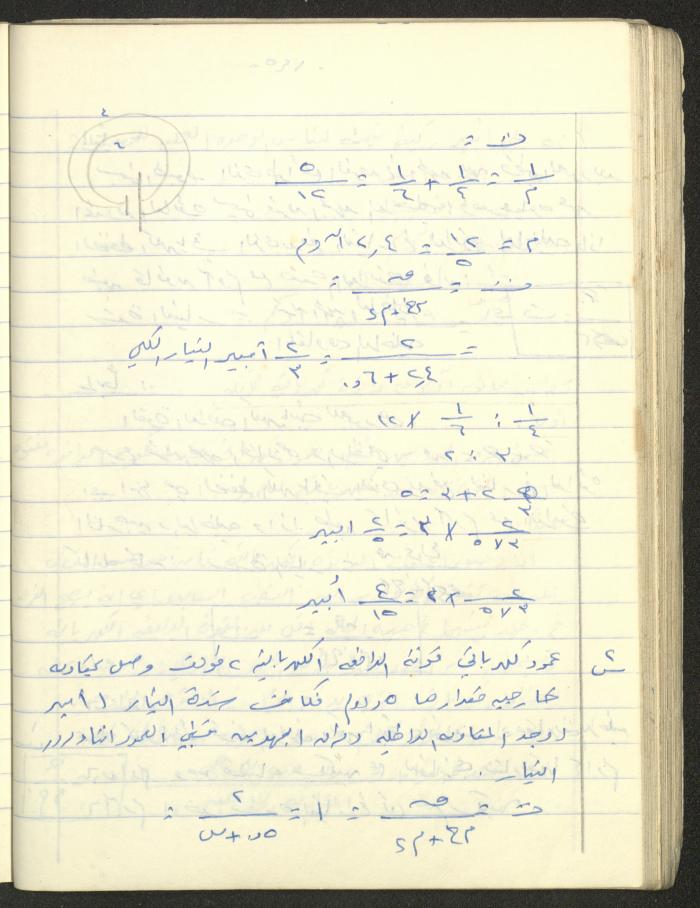 ت =
١/م = ١/٤ + ١/٦ = ٥/١٢
م = ١٢/٥ = ٢,٤ اوم
ت = / م خ + م د =
= ٢ / ٢,٤ + ٠,٦ = ٢/٣ أمبير التيار الكلي
١/٤ : ١/٦ × ١٢
٣ : ٢
٣ + ٢ = ٥
٢/٣×٥ × ٣ = ٢/٥ امبير
٢/٣×٥ × ٢ = ٤/١٥ أمبير
س ٢ عمود كهربائي قوته الدافعة الكهربائية ٢ فولت وصل بمقاومة
خارجية مقدارها ٠,٥ اوم فكانت شدة التيار ١ امبير
اوجد المقاومة الداخلية وفرق الجهد بين قطبي العمود اثناء مرور
التيار .
ت = / م خ + م د = ١ = ٢ / ٠,٥ + س =